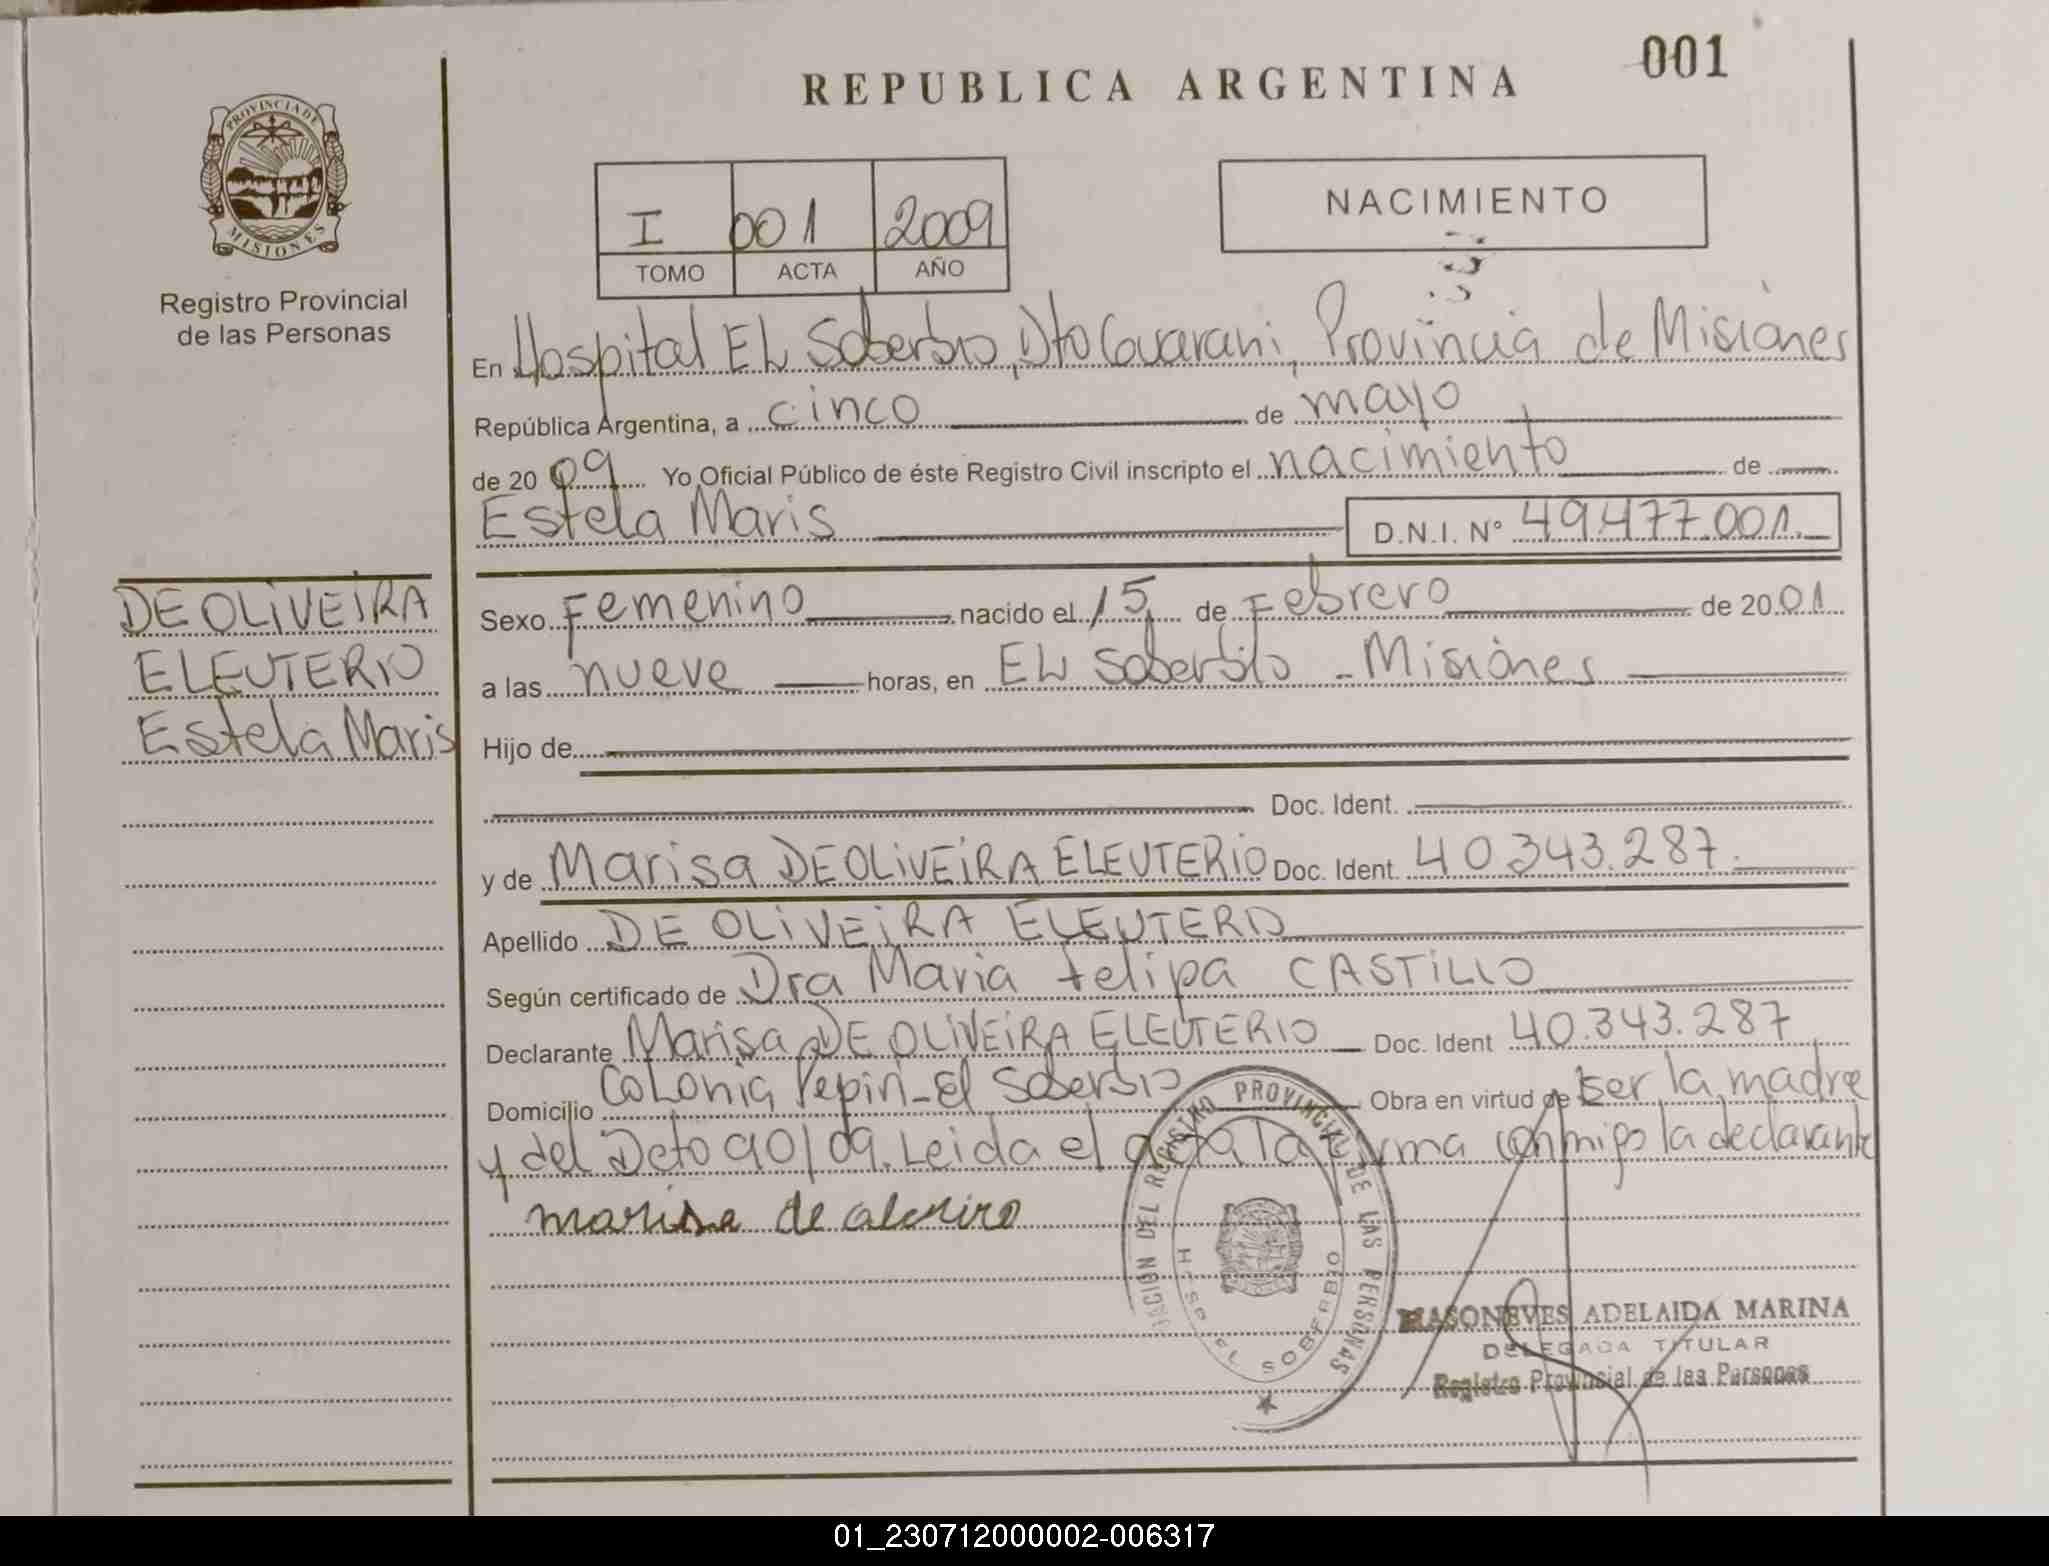 001
REPUBLICA ARGENTINA
PROVINCIA DE
MISIONES
Registro Provincial
de las Personas
I 001 2009
TOMO ACTA AÑO
NACIMIENTO
En Hospital EL Soberbio, Dto Guarani, Provincia de Misiones
República Argentina, a cinco de mayo
de 2009 Yo Oficial Público de éste Registro Civil inscripto el nacimiento de
Estela Maris D.N.I. Nº 49.477.001.
DE OLIVEIRA
ELEUTERIO
Estela Maris
Sexo Femenino nacido el 15 de Febrero de 2001
a las nueve horas, en EL Soberbio - Misiones
Hijo de
Doc. Ident.
y de Marisa DE OLIVEIRA ELEUTERIO Doc. Ident. 40.343.287.
Apellido DE OLIVEIRA ELEUTERIO
Según certificado de Dra Maria Felipa CASTILLO
Declarante Marisa DE OLIVEIRA ELEUTERIO Doc. Ident 40.343.287
Domicilio Colonia Pepin - El Soberbio Obra en virtud de ser la madre
y del Dcto 90/09. Leida el acta la firma conmigo la declarante
marisa de
DEL REGISTRO PROVINCIAL DE LAS PERSONAS
HOSP EL SOBERBIO
MASONEVES ADELAIDA MARINA
DELEGADA TITULAR
Registro Provincial de las Personas
01_230712000002-006317